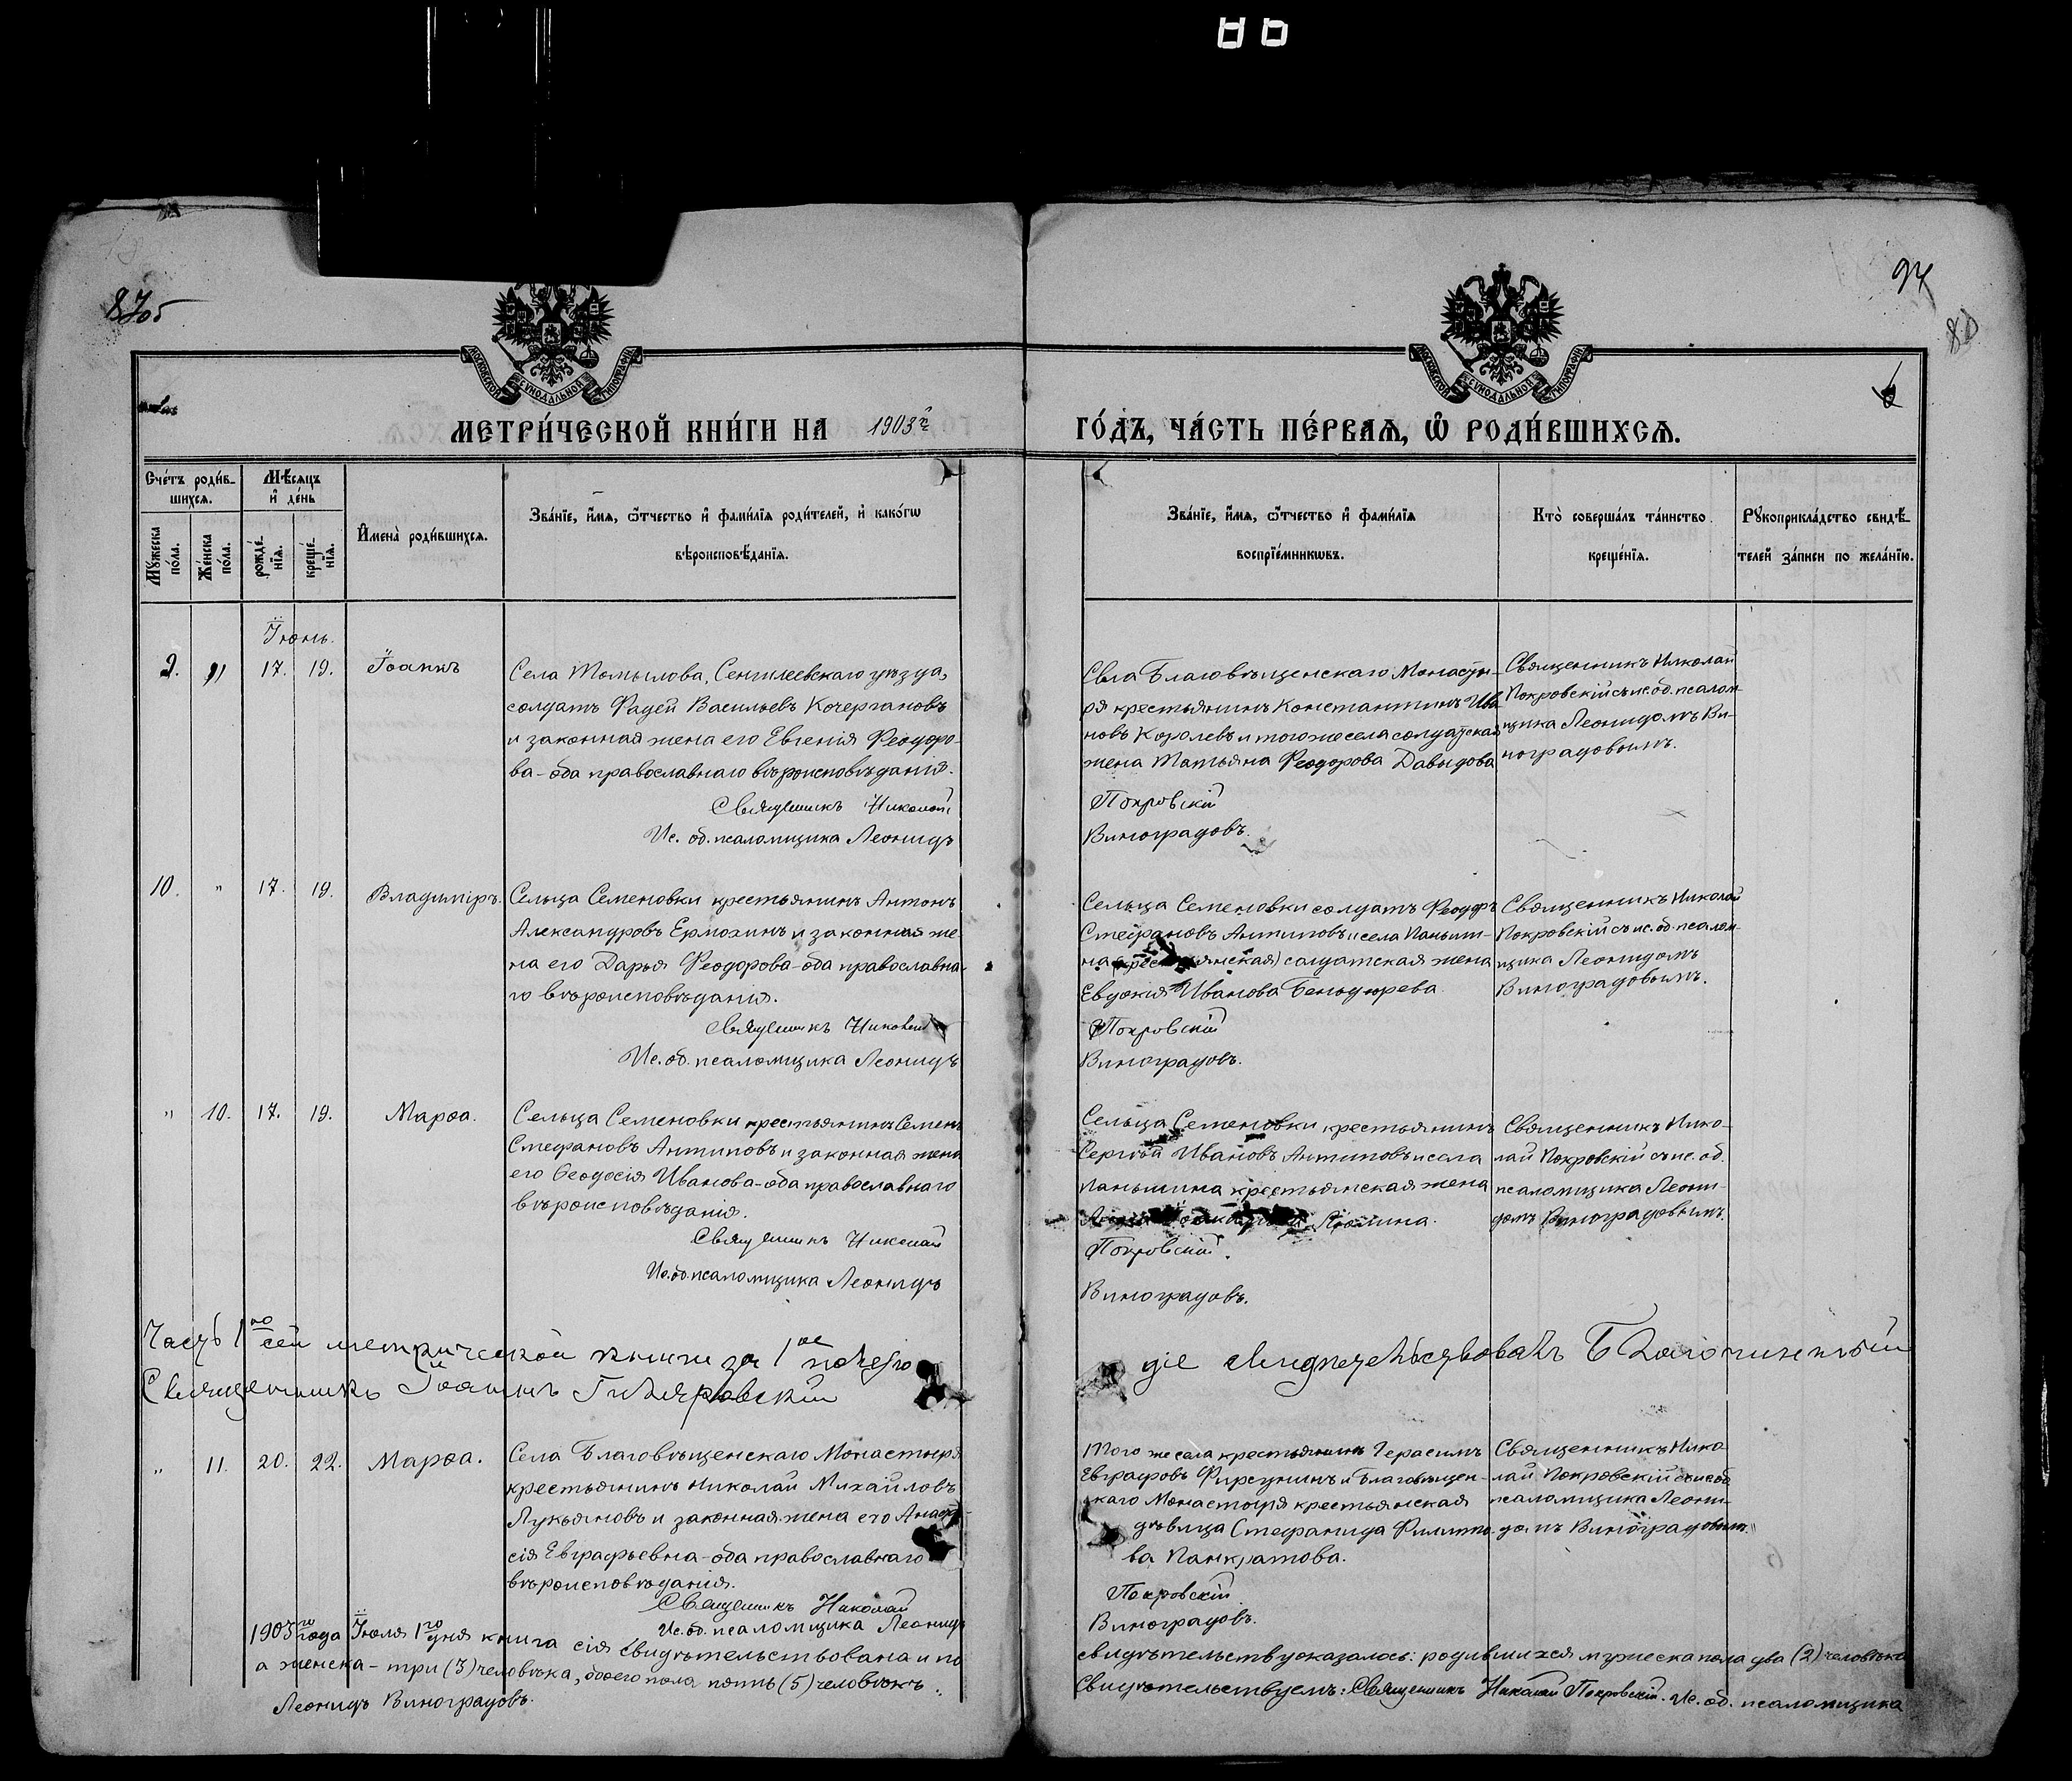 86
87об
94
МОСКОВСКОЙ СѴНОДАЛЬНОЙ ТИПОГРАФІИ
МОСКОВСКОЙ СѴНОДАЛЬНОЙ ТИПОГРАФІИ
МЕТРИ́ЧЕСКОЙ КНИ́ГИ НА 1903й ГО́ДЪ, ЧА́СТЬ ПЕ́РВАѦ, Ѿ РОДИ́ВШИХСѦ.
Сче́тъ роди́в-
шихся.
Мѣ́сяцъ
и҆ де́нь
Мꙋ́жеска
по́ла.
Же́нска
по́ла.
рожде́-
нїя.
креще́-
нїя.
И҆мена̀ роди́вшихся.
Зва́нїе, и҆́мя, ѻ҆́тчество и҆ фами́лїя роди́телей, и҆ како́гѡ
вѣроисповѣ́данїя.
Зва́нїе, и҆́мя, ѻ҆́тчество и҆ фами́лїя
воспрїе́мникѡвъ.
Кто̀ соверша́лъ та́инство
креще́нїя.
Рꙋкоприкла́дство свидѣ́-
телей за́писи по жела́нїю.
Іюнь.
9. " 17. 19. Іоаннъ
Села Томылова, Сенгилеевскаго уѣзда,
солдатъ Фадей Васильевъ Кочергановъ
и законная жена его Евгенія Феодоро-
ва - оба православнаго вѣроисповѣданія.
Священникъ Николай
Ис. об. псаломщика Леонидъ
Села Благовѣщенскаго Монасты-
ря крестьянинъ Константинъ Ива
новъ Королевъ и того же села солдатская
жена Татьяна Феодорова Давыдова
Покровскій
Виноградовъ.
Священникъ Николай
Покровскій съ ис. об. псалом-
щика Леонидомъ Ви-
ноградовымъ.
10. " 17. 19. Владиміръ.
Сельца Семеновки крестьянинъ Антонъ
Александровъ Ермохинъ и законная же-
на его Дарья Феодорова - оба православна-
го вѣроисповѣданія.
Священникъ Николай
Ис. об. псаломщика Леонидъ
Сельца Семеновки солдатъ Феодоръ
Стефановъ Антиповъ и села Паньши-
на солдатская жена
Евдокія Иванова
Покровскій
Виноградовъ.
Священникъ Николай
Покровскій съ ис. об. псалом-
щика Леонидомъ
Виноградовымъ.
" 10. 17. 19. Марѳа.
Сельца Семеновки крестьянинъ Семенъ
Стефановъ Антиповъ и законная жена
его Ѳеодосія Иванова - оба православнаго
вѣроисповѣданія.
Священникъ Николай
Ис. об. псаломщика Леонидъ
Сельца Семеновки крестьянинъ
Сергѣй Ивановъ Антиповъ и села
Паньшина крестьянская жена
Покровскій.
Виноградовъ.
Священникъ Нико-
лай Покровскій съ ис. об.
псаломщика Леони-
домъ Виноградовымъ.
Часть 1ю сей метрической книги за 1ое полуго
діе свидѣтельствовалъ Благочинный
Священникъ Іоаннъ Гиляровскій
" 11. 20. 22. Марѳа.
Села Благовѣщенскаго Монастыря
крестьянинъ Николай Михайловъ
Лукьяновъ и законная жена его Анаста-
сія Евграфьевна - оба православнаго
вѣроисповѣданія.
Священникъ Николай
Ис. об. псаломщика Леонидъ
Того же села крестьянинъ Герасимъ
Евграфовъ Фирсунинъ и Благовѣщен-
скаго Монастыря крестьянская
дѣвица Стефанида Филиппо-
ва Панкратова.
Покровскій
Виноградовъ.
Священникъ Нико
лай Покровскій съ ис об
псаломщика Леони-
домъ Виноградовым.
1903го года Іюля 1го дня книга сія свидѣтельствована и по
свидѣтельству оказалось: родившихся мужеска пола два (2) человѣка
а женска - три (3) человѣка, обоего пола пять (5) человѣкъ.
Свидѣтельствуемъ: Священникъ Николай Покровскій. Ис. об. псаломщика
Леонидъ Виноградовъ.